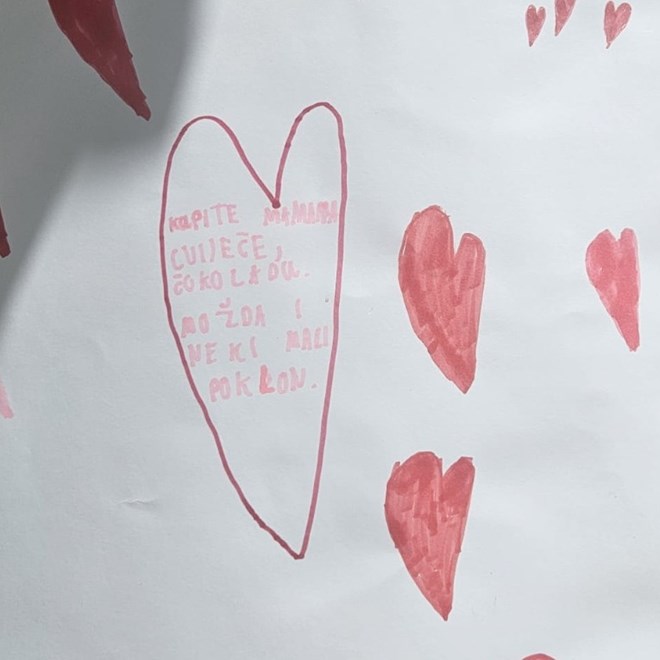 KUPITE MAMAMA
CVIJEĆE,
ČOKOLADU.
MOŽDA I
NEKI MALI
POKLON.